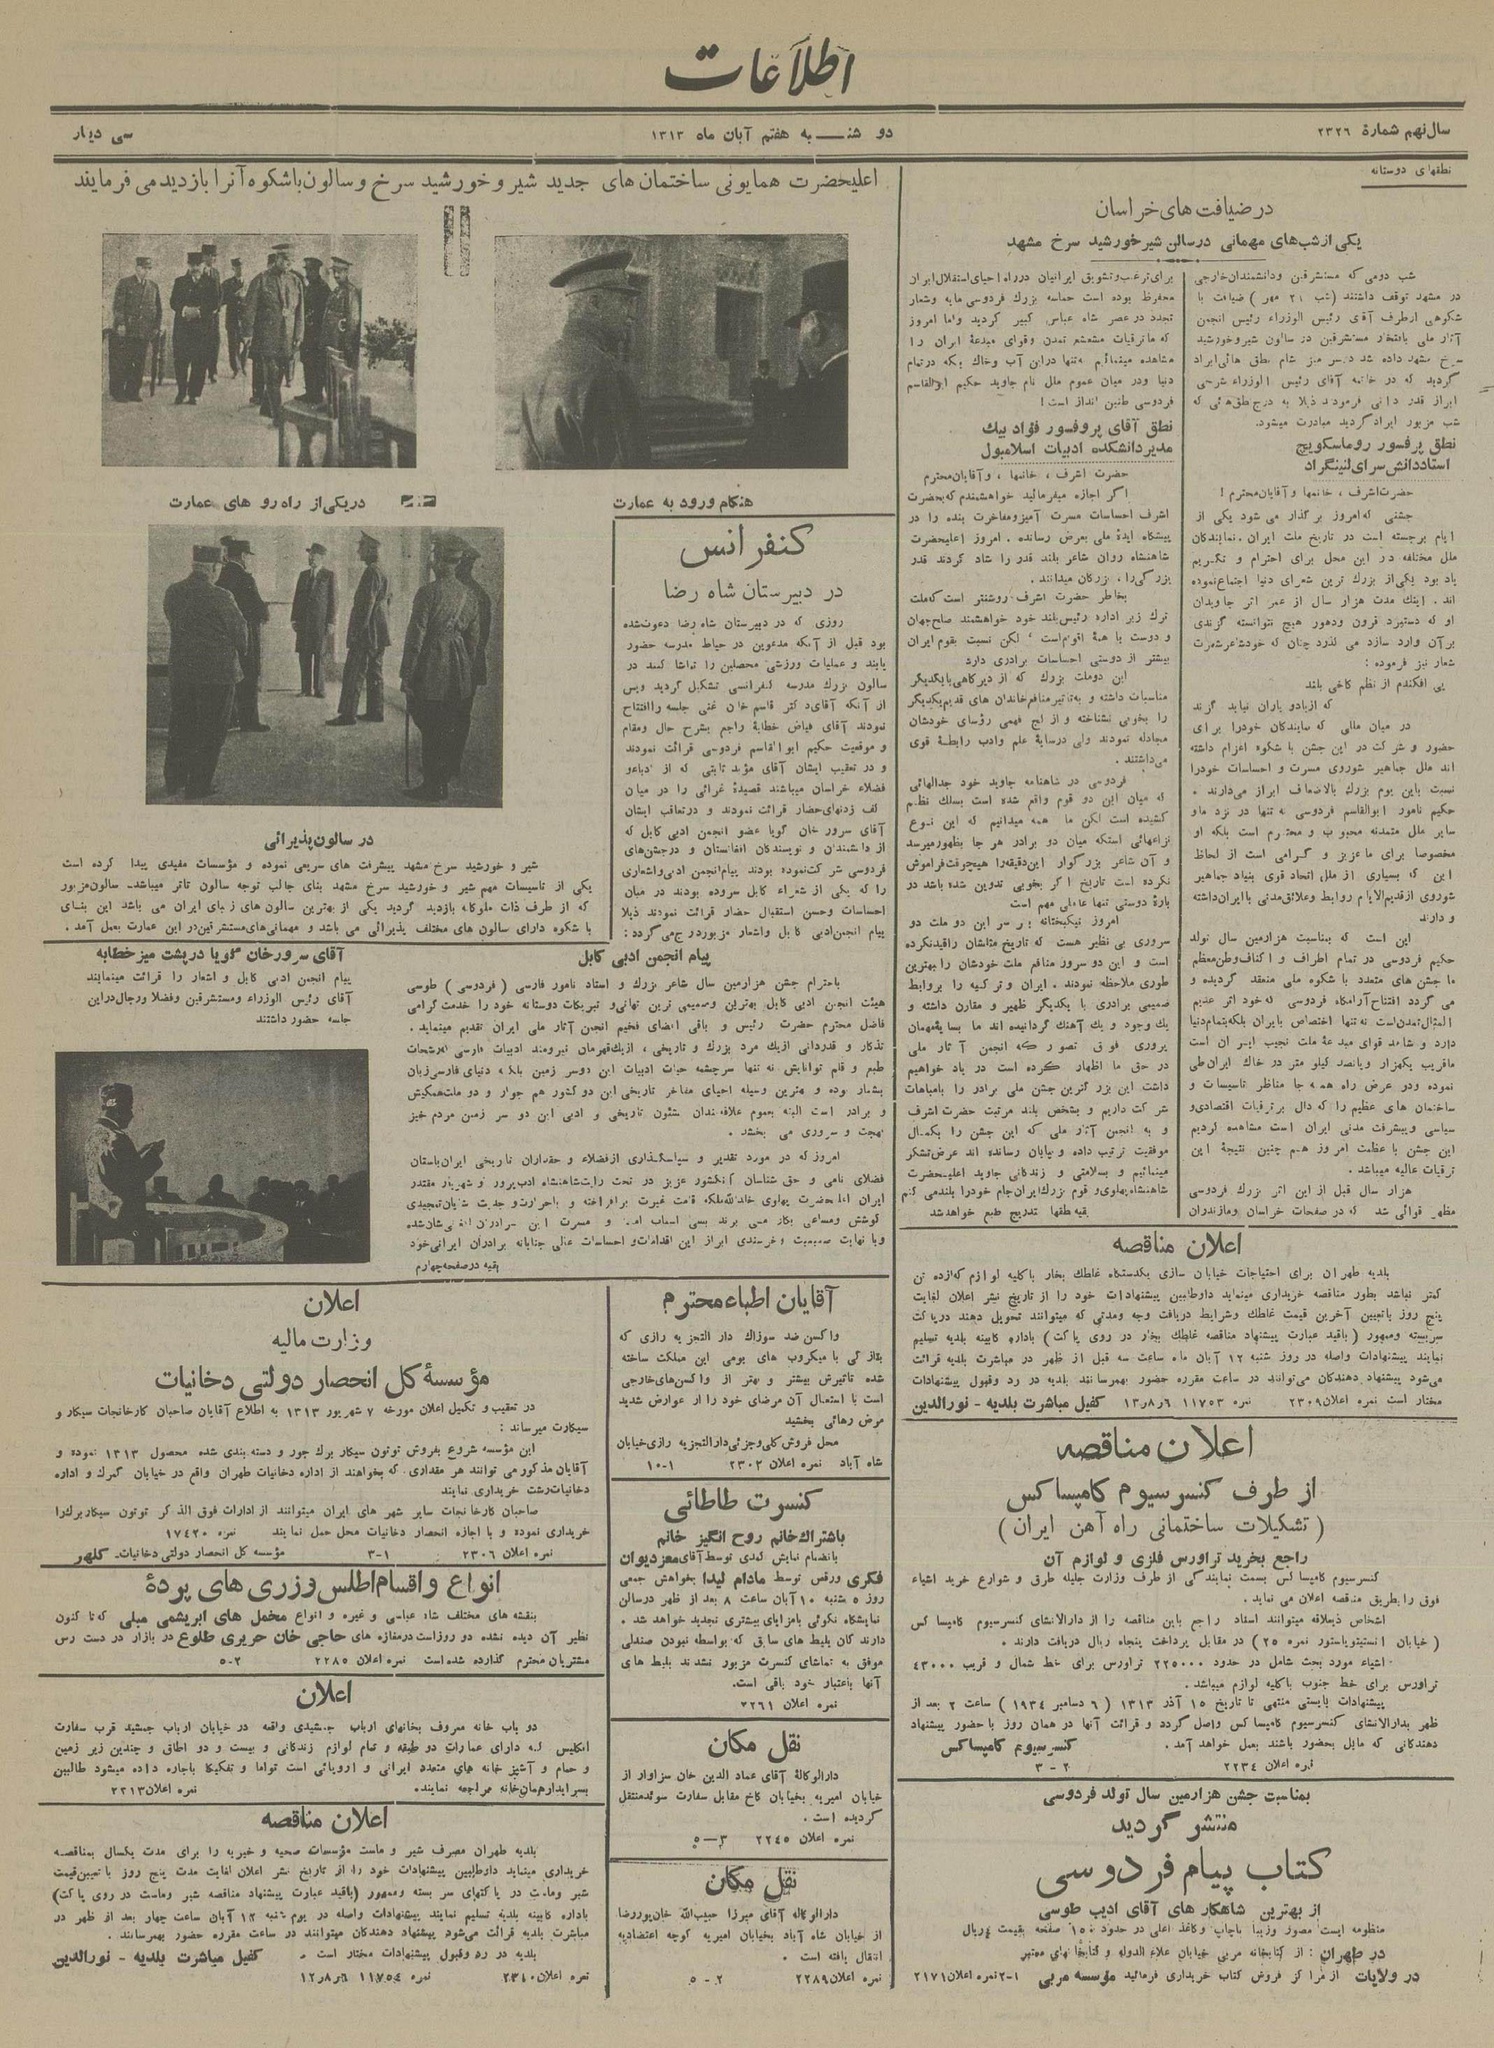 اطلاعات
سال نهم شمارهٔ ۲۳۲۶
دو شنـــــ به هفتم آبان ماه ۱۳۱۳
سی دینار
نطقهای دوستانه
در ضیافت های خراسان
یکی از شب‌های مهمانی در سالن شیر خورشید سرخ مشهد
شب دومی که مستشرقین ودانشمندان خارجی
در مشهد توقف داشتند
شکوهی از طرف آقای رئیس الوزراء رئیس انجمن
آثار ملی بافتخار مستشرقین در سالون شیروخورشید
شب مزبور ایراد گردید مبادرت میشود.
نطق پرفسور روماسکویچ
استاد دانش سرای لنینگراد
حضرت اشرف ، خانمها و آقایان محترم !
جشنی که امروز برگذار می شود یکی از
ایام برجسته است در تاریخ ملت ایران. نمایندگان
ملل مختلفه در این محل برای احترام و تکریم
یاد بود یکی از بزرك ترین شعرای دنیا اجتماع نموده
اند . اینك مدت هزار سال از عمر اثر جاویدان
او که دستبرد قرون ودهور هیچ نتوانسته گزندی
بر آن وارد سازد می گذرد چنان که خود شاعر شهرت
شعار نیز فرموده :
پی افکندم از نظم کاخی بلند
که از باد و باران نیابد گزند
در میان مللی که نمایندگان خودرا برای
حضور و شرکت در این جشن با شکوه اعزام داشته
اند ملل جماهیر شوروی مسرت و احساسات خودرا
نسبت باین یوم بزرك بالاضعاف ابراز می‌دارند .
حکیم نامور ابوالقاسم فردوسی نه تنها در نزد ما و
سایر ملل متمدنه محبوب و محترم است بلکه او
مخصوصا برای ما عزیز و گرامی است از لحاظ
این که بسیاری از ملل اتحاد قوی بنیاد جماهیر
شوروی از قدیم الایام روابط و علائق مدنی با ایران داشته
و دارند
این است که بمناسبت هزارمین سال تولد
حکیم فردوسی در تمام اطراف و اکناف وطن معظم
ما جشن های متعدد با شکوه ملی منعقد گردیده و
می گردد افتتاح آرامگاه فردوسی که خود اثر عدیم
المثال تمدن است نه تنها اختصاص بایران بلکه بتمام دنیا
دارد و شاهد قوای مبدعهٔ ملت نجیب ایران است
ما قریب یکهزار و پانصد کیلو متر در خاك ایران طی
نموده ودر عرض راه همه جا مناظر تاسیسات و
ساختمان های عظیم را که دال بر ترقیات اقتصادی و
سیاسی و پیشرفت مدنی ایران است مشاهده کردیم
این جشن با عظمت امروز هم چنین نتیجهٔ این
ترقیات عالیه میباشد .
هزار سال قبل از این اثر بزرك فردوسی
مظهر قوائی شد که در صفحات خراسان ومازندران
برای ترغیب و تشویق ایرانیان در راه احیای استقلال ایران
محفوظ بوده است حماسه بزرك فردوسی مایه وشعار
تجدد در عصر شاه عباس کبیر گردید واما امروز
که ما ترقیات مشعشع تمدن وقوای مبدعهٔ ایران را
مشاهده مینمائیم نه تنها در این آب وخاك بلکه در تمام
دنیا ودر میان عموم ملل نام جاوید حکیم ابوالقاسم
فردوسی طنین انداز است !
نطق آقای پروفسور فؤاد بیك
مدیر دانشکده ادبیات اسلامبول
حضرت اشرف ، خانمها ، و آقایان محترم
اگر اجازه میفرمائید خواهشمندم که بحضرت
اشرف احساسات مسرت آمیز و مفاخرت بنده را در
پیشگاه ایدهٔ ملی بعرض رسانده . امروز اعلیحضرت
شاهنشاه روان شاعر بلند قدر را شاد کردند قدر
بزرگی را ، بزرگان میدانند .
بخاطر حضرت اشرف روشنتر است که ملت
ترك زیر اداره رئیس بلند خود خواهشمند صلح جهان
و دوست با همهٔ اقوام است ؛ لکن نسبت بقوم ایران
بیشتر از دوستی احساسات برادری دارد
این دوملت بزرك که از دیرگاهی با یکدیگر
مناسبات داشته و خاندان های قدیم یکدیگر
را بخوبی نشناخته و از کج فهمی رؤسای خودشان
مجادله نمودند ولی در سایهٔ علم وادب رابطهٔ قوی
می‌داشتند .
فردوسی در شاهنامه جاوید خود جدالهائی
که میان این دو قوم واقع شده است بسلك نظم
کشیده است لکن ما همه میدانیم که این نوع
نزاعهائی استکه میان دو برادر هر جا بظهور میرسد
و آن شاعر بزرگوار این دقیقه را هیچوقت فراموش
نکرده است تاریخ اگر بخوبی تدوین شده باشد در
بارهٔ دوستی تنها عامل مهم است
امروز نیکبختانه بر سر این دو ملت دو
سروری بی نظیر هست که تاریخ مثلشان را قید نکرده
است و این دو سرور منافع ملت خودشان را بهترین
طوری ملاحظه نمودند . ایران و ترکیه را بروابط
صمیمی برادری با یکدیگر ظهیر و مقارن داشته و
یك وجود و یك آهنگ گردانیده اند ما بسایهٔ مهمان
پروری فوق تصور که انجمن آثار ملی
در حق ما اظهار کرده است در یاد خواهیم
داشت این بزرگترین جشن ملی برادر را با مباهات
شرکت داریم و بشخص بلند مرتبت حضرت اشرف
و به انجمن آثار ملی که این جشن را بکمال
موفقیت ترتیب داده و بپایان رسانده اند عرض تشکر
مینمائیم و بسلامتی و زندگانی جاوید اعلیحضرت
شاهنشاه پهلوی و قوم بزرك ایران جام خودرا بلند می کنم
بقیه نطقها بتدریج طبع خواهد شد
اعلان مناقصه
بلدیه طهران برای احتیاجات خیابان سازی یکدستگاه غلطك بخار باکلیه لوازم که از ده تن
کمتر نباشد بطور مناقصه خریداری مینماید داوطلبین پیشنهادات خود را از تاریخ نشر اعلان لغایت
پنج روز باتعیین آخرین قیمت غلطك وشرایط دریافت وجه ومدتی که میتوانند تحویل دهند در پاکت
سربسته وممهور (باقید عبارت پیشنهاد مناقصه غلطك بخار در روی پاکت) باداره کابینه بلدیه تسلیم
نمایند پیشنهادات واصله در روز شنبه ۱۲ آبان ماه ساعت سه قبل از ظهر در مباشرت بلدیه قرائت
می‌شود پیشنهاد دهندکان می‌توانند در ساعت مقرره حضور بهمرسانند بلدیه در رد وقبول پیشنهادات
مختار است نمره اعلان ۲۳۰۹ نمره ۱۱۷۵۳ ۶ر۸ر۱۳ کفیل مباشرت بلدیه - نورالدین
اعلان مناقصه
از طرف کنسرسیوم کامپساکس
( تشکیلات ساختمانی راه آهن ایران )
راجع بخرید تراورس فلزی و لوازم آن
کنسرسیوم کامپساکس بسمت نمایندگی از طرف وزارت جلیله طرق و شوارع خرید اشیاء
فوق را بطریق مناقصه اعلان می نماید .
اشخاص ذیعلاقه میتوانند اسناد راجع باین مناقصه را از دارالانشای کنسرسیوم کامپساکس
( خیابان انستیتوپاستور نمره ۲۵ ) در مقابل پرداخت پنجاه ریال دریافت دارند .
اشیاء مورد بحث شامل در حدود ۲۲۵۰۰۰ تراورس برای خط شمال و قریب ۴۳۰۰۰
تراورس برای خط جنوب باکلیه لوازم میباشد .
پیشنهادات بایستی منتهی تا تاریخ ۱۵ آذر ۱۳۱۳ ( ۶ دسامبر ۱۹۳۴ ) ساعت ۲ بعد از
ظهر بدارالانشای کنسرسیوم کامپساکس واصل گردد و قرائت آنها در همان روز با حضور پیشنهاد
دهندگانی که مایل بحضور باشند بعمل خواهد آمد . کنسرسیوم کامپساکس
نمره اعلان ۲۲۳۴ ۲ - ۳
بمناسبت جشن هزارمین سال تولد فردوسی
منتشر گردید
کتاب پیام فردوسی
از بهترین شاهکار های آقای ادیب طوسی
منظومه ایست مصور وزیبا باچاپ وکاغذ اعلی در حدود ۱۵۰ صفحه بقیمت ۴ ریال
در طهران : از کتابخانه مربی خیابان علاء الدوله و کتابخانهای معتبر
در ولایات از مراکز فروش کتاب خریداری فرمائید مؤسسه مربی ۱-۲ نمره اعلان ۲۱۷۱
اعلیحضرت همایونی ساختمان های جدید شیر و خورشید سرخ و سالون باشکوه آنرا بازدید می فرمایند
هنگام ورود به عمارت
در یکی از راه رو های عمارت
در سالون پذیرائی
شیر و خورشید سرخ مشهد پیشرفت های سریعی نموده و مؤسسات مفیدی پیدا کرده است
یکی از تاسیسات مهم شیر و خورشید سرخ مشهد بنای جالب توجه سالون تاتر میباشد. سالون مزبور
که از طرف ذات ملوکانه بازدید گردید یکی از بهترین سالون های زیبای ایران می باشد این بنای
با شکوه دارای سالون های مختلف پذیرائی می باشد و مهمانی‌های مستشرقین در این عمارت بعمل آمد .
کنفرانس
در دبیرستان شاه رضا
روزی که در دبیرستان شاه رضا دعوت شده
بود قبل از آنکه مدعوین در حیاط مدرسه حضور
یابند و عملیات ورزشی محصلین را تماشا کنند در
سالون بزرك مدرسه کنفرانسی تشکیل گردید وپس
از آنکه آقای دکتر قاسم خان غنی جلسه را افتتاح
نمودند آقای فیاض خطابهٔ راجع بشرح حال ومقام
و موقعیت حکیم ابوالقاسم فردوسی قرائت نمودند
و در تعقیب ایشان آقای مؤید ثابتی که از ادباء و
فضلاء خراسان میباشند قصیدهٔ غرائی را در میان
کف زدنهای حضار قرائت نمودند و در تعاقب ایشان
آقای سرور خان گویا عضو انجمن ادبی کابل که
از دانشمندان و نویسندکان افغانستان و در جشن‌های
فردوسی شرکت نموده بودند پیام انجمن ادبی و اشعاری
را که یکی از شعراء کابل سروده بودند در میان
احساسات وحسن استقبال حضار قرائت نمودند ذیلا
پیام انجمن ادبی کابل واشعار مزبور درج می گردد :
پیام انجمن ادبی کابل
باحترام جشن هزارمین سال شاعر بزرك و استاد نامور فارسی ( فردوسی ) طوسی
هیئت انجمن ادبی کابل بهترین وصمیمی ترین تهانی و تبریکات دوستانه خود را خدمت گرامی
فاضل محترم حضرت رئیس و باقی اعضای فخیم انجمن آثار ملی ایران تقدیم مینماید .
تذکار و قدردانی از یك مرد بزرك و تاریخی ، از یك قهرمان نیرومند ادبیات فارسی که رشحات
طبع و قلم توانایش نه تنها سرچشمه حیات ادبیات این دوسر زمین بلکه دنیای فارسی زبان
بشمار بوده و بهترین وسیله احیای مفاخر تاریخی این دو کشور هم جوار و دو ملت همکیش
و برادر است البته بعموم علاقمندان شئون تاریخی و ادبی این دو سر زمین مردم خیز
بهجت و سروری می بخشد .
امروز که در مورد تقدیر و سپاسگذاری از فضلاء و حقداران تاریخی ایران باستان
فضلای نامی و حق شناسان آنکشور عزیز در تحت رایت شاهنشاه ادب پرور و شهریار مقتدر
ایران اعلیحضرت پهلوی خلدالله ملکه قامت غیرت برافراخته و باحرارت وجدیت شایان تمجیدی
کوشش ومساعی بکار می برند بسی اسباب
وبا نهایت صمیمیت وخرسندی ابراز این اقدامات و احساسات عالی جنابانه برادران ایرانی خود
بقیه در صفحه چهارم
آقای سرورخان گویا در پشت میز خطابه
پیام انجمن ادبی کابل و اشعار را قرائت مینمایند
آقای رئیس الوزراء ومستشرقین وفضلا ورجال در این
جلسه حضور داشتند
آقایان اطباء محترم
واکسن ضد سوزاك دار التجزیه رازی که
بتازگی با میکروب های بومی این مملکت ساخته
شده تاثیرش بیشتر و بهتر از واکسن‌های خارجی
است با استعمال آن مرضای خود را از عوارض شدید
مرض رهائی بخشید
محل فروش کلی وجزئی دارالتجزیه رازی خیابان
شاه آباد نمره اعلان ۲۳۰۲ ۱-۱۰
کنسرت طاطائی
باشتراك خانم روح انگیز خانم
بانضمام نمایش کمدی توسط آقای معزدیوان
فکری ورقص توسط مادام لیدا بخواهش جمعی
روز ۵ شنبه ۱۰ آبان ساعت ۸ بعد از ظهر در سالن
نمایشگاه نکوئی بامزایای بیشتری تجدید خواهد شد .
دارند گان بلیط های سابق که بواسطه نبودن صندلی
موفق به تماشای کنسرت مزبور نشدند بلیط های
آنها باعتبار خود باقی است.
نمره اعلان ۲۲۶۱
نقل مکان
دارالوکالهٔ آقای عماد الدین خان سزاوار از
خیابان امیریه بخیابان کاخ مقابل سفارت سوئد منتقل
گردیده است .
نمره اعلان ۲۲۴۵ ۳—۵
نقل مکان
دارالوکاله آقای میرزا حبیب الله خان پوررضا
از خیابان شاه آباد بخیابان امیریه کوچه اعتضادیه
انتقال یافته است .
نمره اعلان ۲۲۸۹ ۲ - ۵
اعلان
وزارت مالیه
مؤسسهٔ کل انحصار دولتی دخانیات
در تعقیب و تکمیل اعلان مورخه ۷ شهریور ۱۳۱۳ به اطلاع آقایان صاحبان کارخانجات سیکار و
سیکارت میرساند :
این مؤسسه شروع بفروش توتون سیکار برك جور و دسته بندی شده محصول ۱۳۱۳ نموده و
آقایان مذکور می توانند هر مقداری که بخواهند از اداره دخانیات طهران واقع در خیابان گمرك و اداره
دخانیات رشت خریداری نمایند
صاحبان کارخانجات سایر شهر های ایران میتوانند از ادارات فوق الذکر توتون سیکار برك را
خریداری نموده و با اجازه انحصار دخانیات محل حمل نمایند نمره ۱۷۴۲۰
نمره اعلان ۲۳۰۶ ۱-۳ مؤسسه کل انحصار دولتی دخانیات. کلهر
انواع و اقسام اطلس وزری های پردهٔ
بنقشه های مختلف شاه عباسی و غیره و انواع مخمل های ابریشمی مبلی که تا کنون
نظیر آن دیده نشده دو روزاست در مغازه های حاجی خان حریری طلوع در بازار در دست رس
مشتریان محترم گذارده شده است نمره اعلان ۲۲۸۵ ۲-۵
اعلان
دو باب خانه معروف بخانهای ارباب جمشیدی واقعه در خیابان ارباب جمشید قرب سفارت
انگلیس که دارای عمارات دو طبقه و تمام لوازم زندگانی و بیست و دو اطاق و چندین زیر زمین
و حمام و آشپز خانه های متعدد ایرانی و اروپائی است تواما و تفکیکا باجاره داده میشود طالبین
بسرایدار همان خانه مراجعه نمایند. نمره اعلان ۲۲۱۳
اعلان مناقصه
بلدیه طهران مصرف شیر و ماست مؤسسات صحیه و خیریه را برای مدت یکسال بمناقصه
خریداری مینماید داوطلبین پیشنهادات خود را از تاریخ نشر اعلان لغایت مدت پنج روز با تعیین قیمت
شیر وماست در پاکتهای سر بسته وممهور (باقید عبارت پیشنهاد مناقصه شیر وماست در روی پاکت)
باداره کابینه بلدیه تسلیم نمایند پیشنهادات واصله در یوم شنبه ۱۲ آبان ساعت چهار بعد از ظهر در
مباشرت بلدیه قرائت می‌شود پیشنهاد دهندکان میتوانند در ساعت مقرره حضور بهمرسانند .
بلدیه در رد وقبول پیشنهادات مختار است . کفیل مباشرت بلدیه - نورالدین
نمره اعلان ۲۳۱۰ نمره ۱۱۷۵۴ ۶ر۸ر۱۳